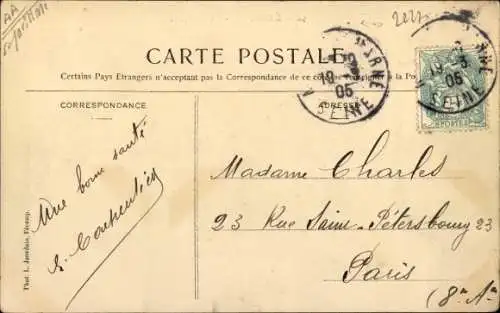 2227
CARTE POSTALE
Certains Pays Etrangers n'acceptant pas la Correspondance de ce à la Po
CORRESPONDANCE
ADRESSE
19
05
SEINE
19 - 3
05
SEINE
POSTES
Une bonne santé
E. Carpentier
Madame Charles
23 Rue Saint-Petersbourg 23
Paris
(8e Ar
Phot. L. Fécamp.